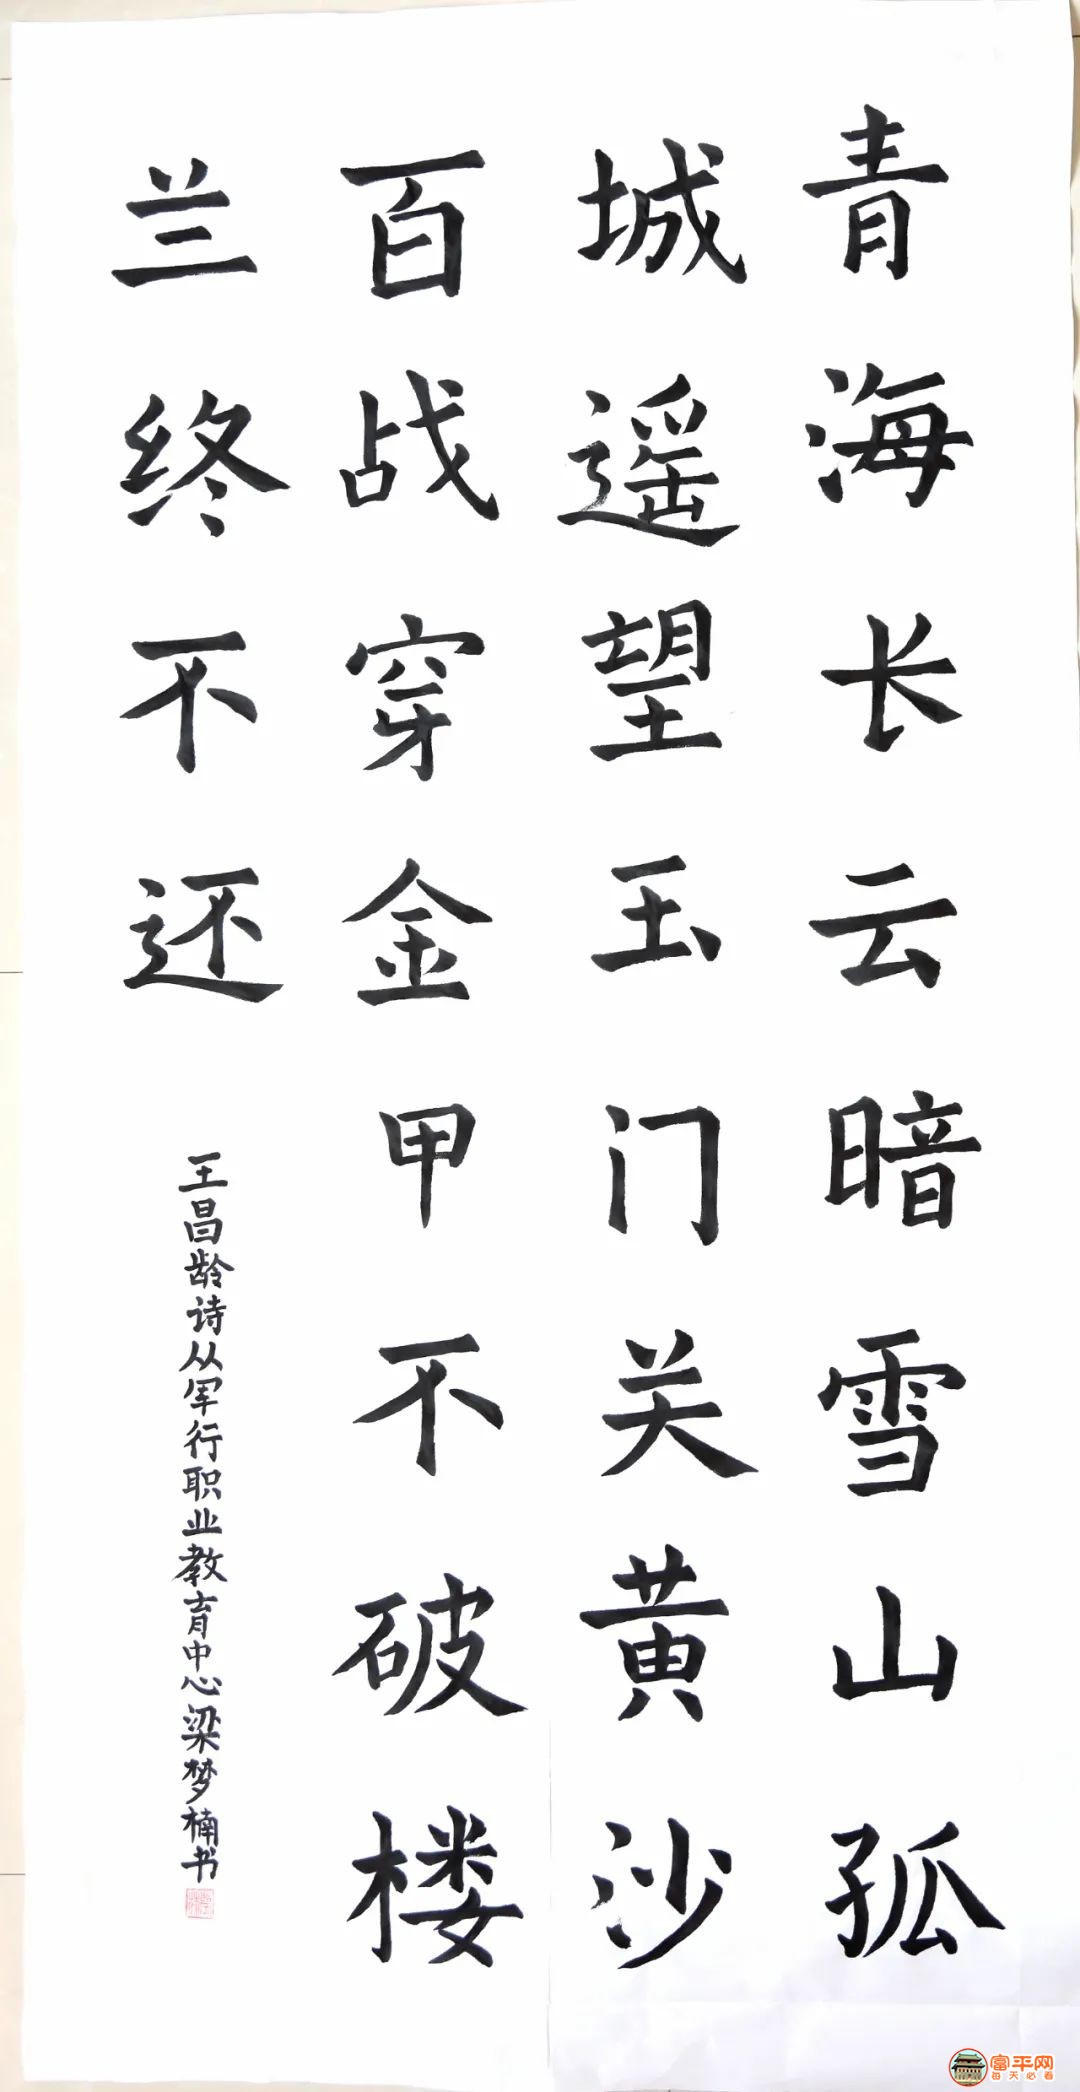 青海长云暗雪山孤
城遥望玉门关黄沙
百战穿金甲不破楼
兰终不还
王昌龄诗从军行职业教育中心梁梦楠书
富平网
每天必看